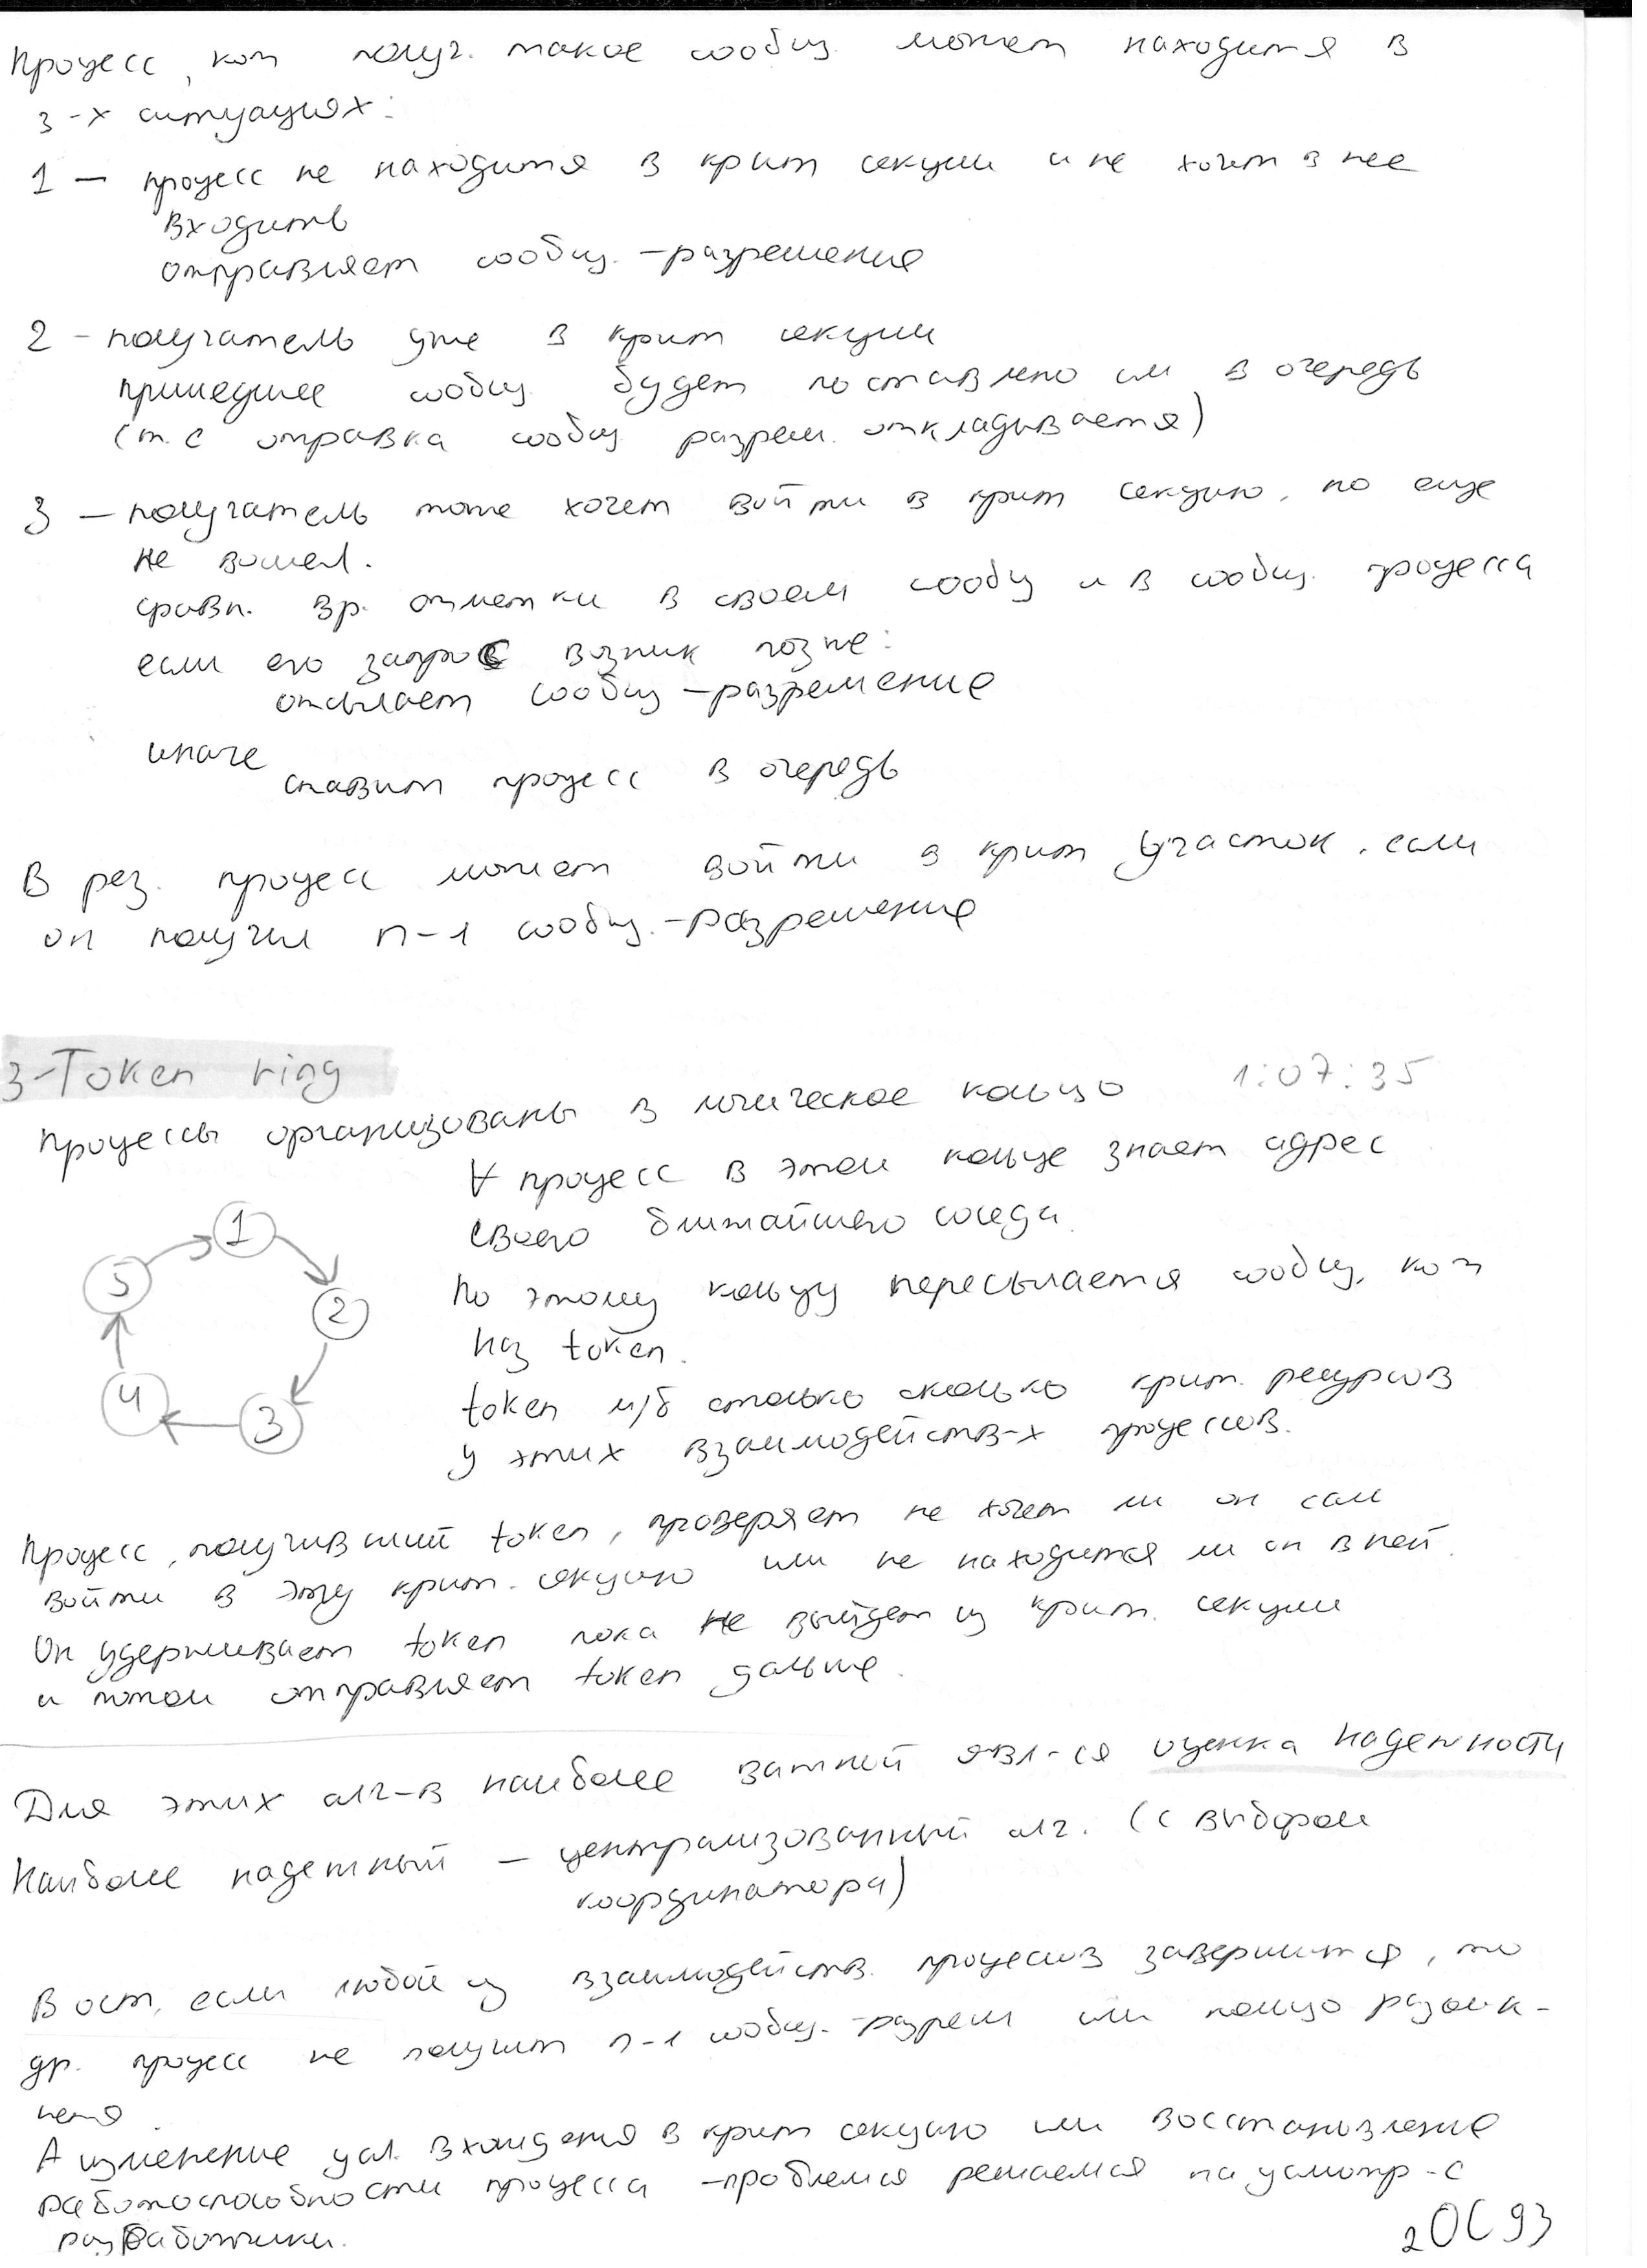 Процесс, кот получ. такое сообщ. может находится в
3-х ситуациях:
1 — процесс не находится в крит секции и не хочет в нее
входить
отправляет сообщ. -разрешение
2 - получатель уже в крит секции
пришедшее сообщ. будет поставлено им в очередь
(т.е отправка сообщ разреш. откладывается)
3 — получатель тоже хочет войти в крит секцию, но еще
не вошел.
сравн. вр. отметки в своем сообщ и в сообщ. процесса
если его запрос возник позже:
отсылает сообщ -разрешение
иначе
ставит процесс в очередь
В рез. процесс может войти в крит участок, если
он получил n-1 сообщ.-разрешение
3-Token ring
1:07:35
Процессы организованы в логическое кольцо
∀ процесс в этом кольце знает адрес
своего ближайшего соседа.
По этому кольцу пересылается сообщ, кот
наз token.
token м/б столько сколько крит. ресурсов
у этих взаимодейств-х процессов.
1
2
3
4
5
Процесс, получивший token, проверяет не хочет ли он сам
войти в эту крит. секцию или не находится ли он в ней.
Он удерживает token пока не выйдет из крит. секции
и потом отправляет token дальше.
Для этих алг-в наиболее важной явл-ся оценка надежности
Наиболее надежный — централизованный алг. (с выбором
координатора)
В ост, если любой из взаимодейств. процессов завершится, то
др. процесс не получит n-1 сообщ.-разреш или кольцо разомк-
нется.
А изменение усл. вхождения в крит секцию или восстановление
работоспособности процесса -проблемса решаемся на усмотр-е
разработчики.
2ОС93